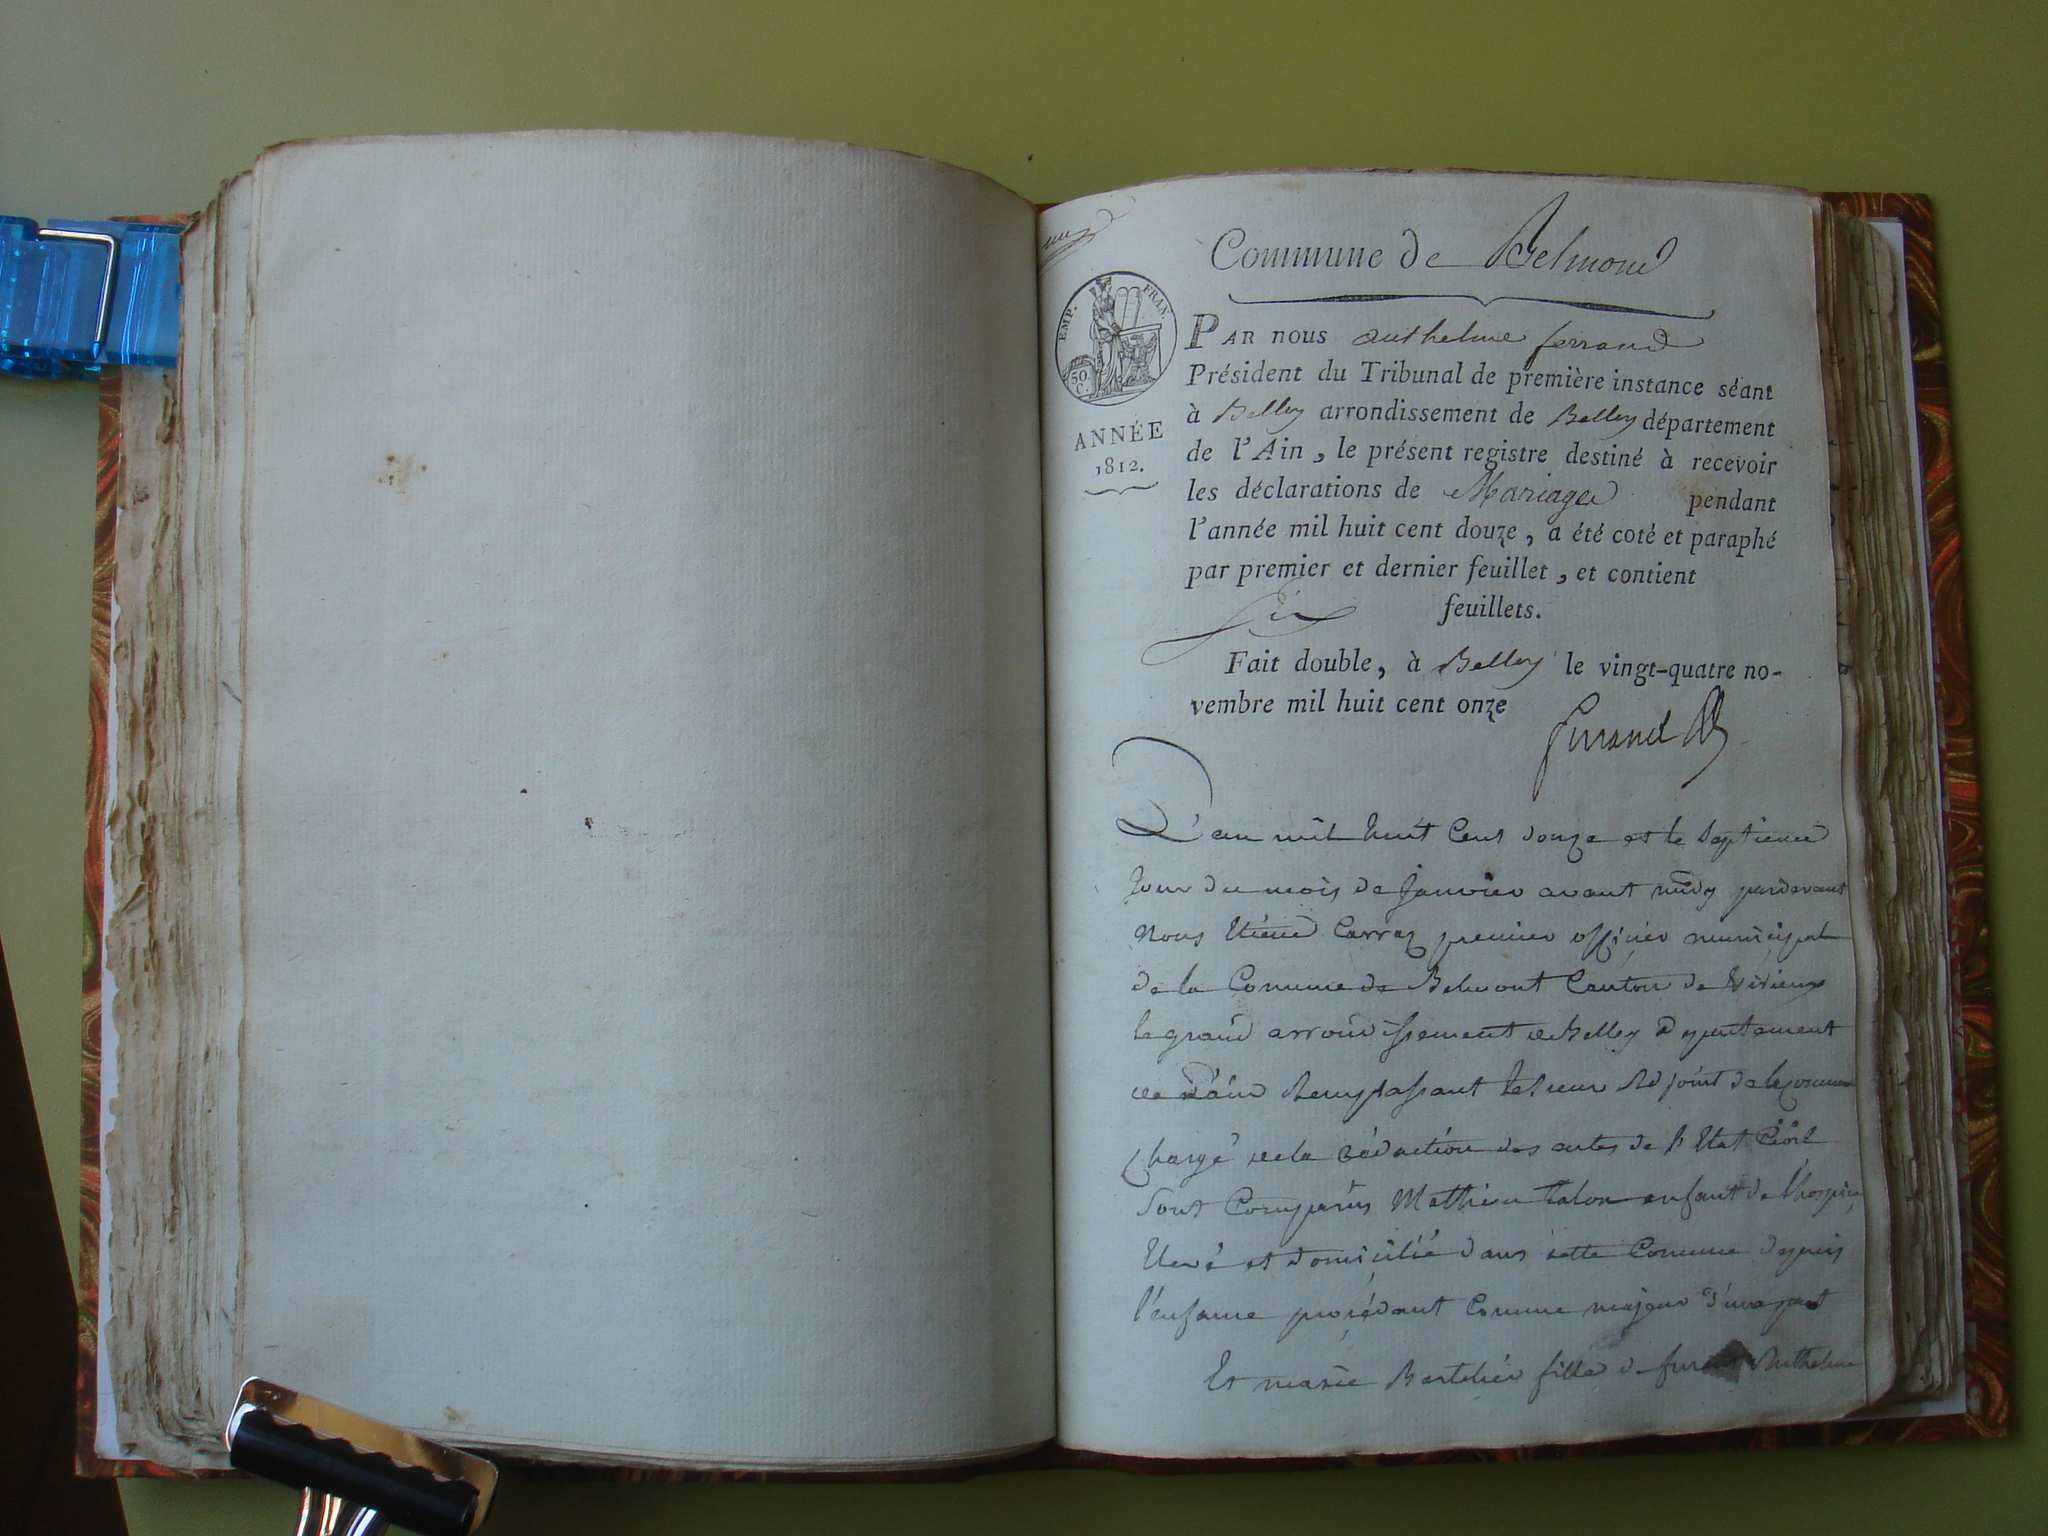 Commune de Belmond
EMP. FRAN.
50.
C.
ANNÉE
1812.
PAR NOUS Anthelme ferrand
Président du Tribunal de première instance séant
à Belley arrondissement de Belley département
de l'Ain, le présent registre destiné à recevoir
les déclarations de Mariages pendant
l'année mil huit cent douze, a été coté et paraphé
par premier et dernier feuillet, et contient
Six feuillets.
Fait double, à Belley le vingt-quatre no-
vembre mil huit cent onze
ferrand
L'an mil huit Cent douze et le Septieme
Jour du mois de Janvier avant midy pardevant
Nous Etiene Carraz premier officier municipal
de la Comune de Belmont Canton de Virieux
le grand arrondissement de Belley Departement
de Remplassant le sieur Adjoint de la Comune
Chargé de la Rédaction des actes de l'Etat Civil
Sont Comparus Mathieu talon enfant de l'hospice
Elevé et domicilié dans cette Comune depuis
l'enfance procédant Comme majeur d'une part
Et marie Bertelier fille de Anthelme